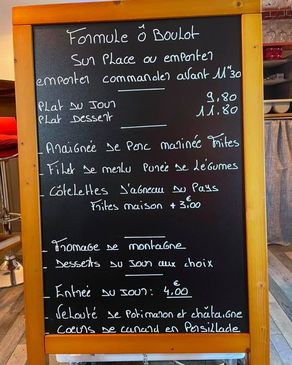 Formule Ô Boulot
Sur Place ou emporter
emporter commander avant 11H30
Plat du Jour 9.80
Plat Dessert 11.80
- Araignée de Porc marinée Frites
- Filet de merlu Purée de Légumes
- Côtelettes d'agneau du Pays
Frites maison + 3.€00
- Fromage de montagne
- Desserts du Jour aux choix
- Entrée du Jour: 4.€00
- Velouté de Potimaron et châtaigne
Coeurs de canard en Persillade